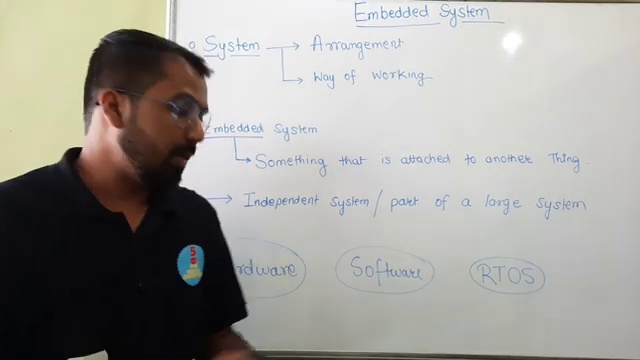 Embedded System
System → Arrangement
Way of working
Embedded System
Something that is attached to another Thing.
→ Independent system / part of a large system
Software RTOS